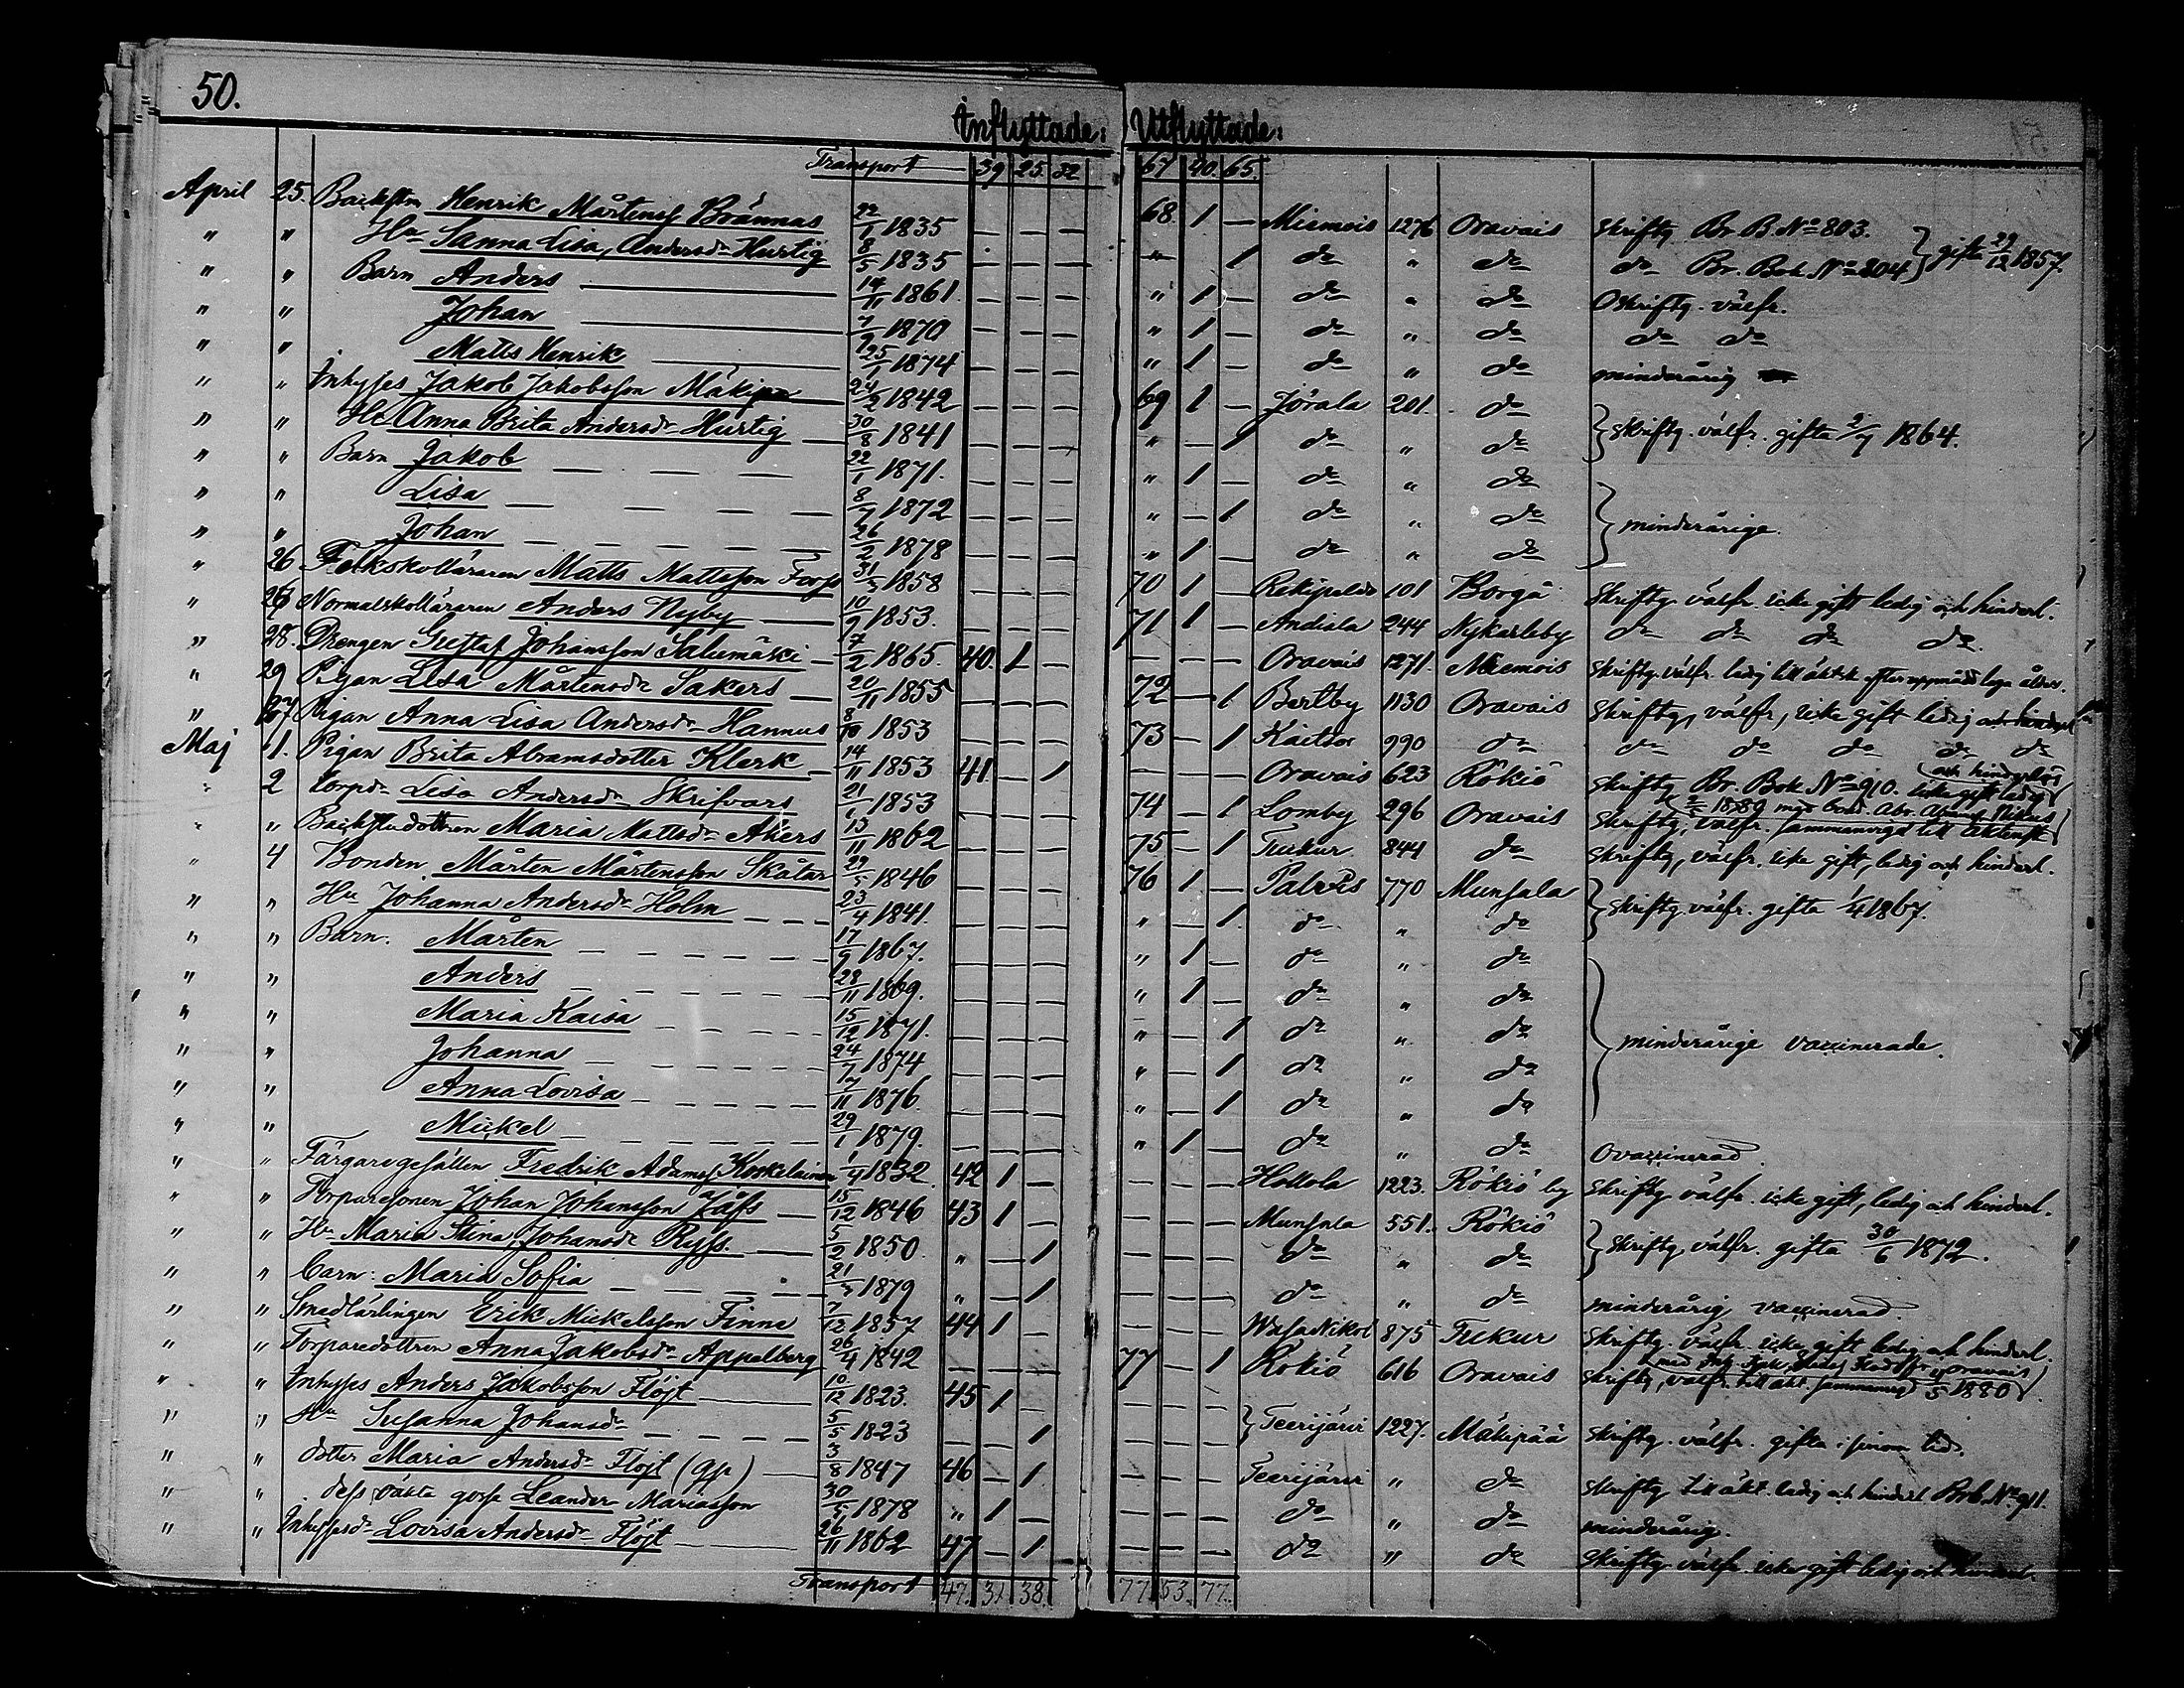 50.
Inflyttade: Utflyttade:
Transport 39 25 32 67 40. 65.
April 25. Backstm Henrik Mårtenss Brännas 22/1 1835 — — — 68. 1 — Miemois 1276 Oravais Skriftg. Br. B. No 803.
" " Hu Sanna Lisa, Andersdr Hurtig 8/5 1835 — — — " — 1 do " do do Br. Bok No 804 } gifta 29/12 1857.
" " Barn Anders 14/11 1861. — — — " 1 — do " do Oskriftg. välfr.
" " Johan 7/9 1870 — — — " 1 — do " do do do
" " Matts Henrik 25/1 1874 — — — " 1 — do " do minderårig
" " Inhyses Jakob Jakobsson Mäkipää 24/2 1842 — — — 69 1 — Jörala 201. do
" " Hu Anna Brita Andersdr Hurtig 30/8 1841 — — — " — 1 do " do } Skriftg. välfr. gifta 2/7 1864.
" " Barn Jakob 22/1 1871. — — — " 1 — do " do
" " Lisa 8/7 1872 — — — " — 1 do " do } minderårige.
" " Johan 26/2 1878 — — — " 1 — do " do
" 26 Folkskolläraren Matts Mattsson Forss 31/3 1858 — — — 70 1 — 101 Borgå Skriftg. välfr. icke gift ledig och hinderl.
" 26 Normalskolläraren Anders Nyby 10/9 1853. — — — 71 1 — Andiala 244 Nykarleby do do do do
" 28. Drengen Gustaf Johansson Salumäki 7/2 1865. 40. 1 — — — — Oravais 1271. Miemois Skriftg. välfr. ledig till äktsk. efter uppnådd laga ålder.
" 29 Pigan Lisa Mårtensdr Sakers 20/11 1855 — — — 72 — 1 Bertby 1130 Oravais Skriftg, välfr, icke gift ledig och hinderl
" 27 Pigan Anna Lisa Andersdr Hannus 8/10 1853 — — — 73 — 1 Kaitsor 990 do do do do do do
Maj 1. Pigan Brita Abramsdotter Klerk 14/11 1853 41. — 1 — — — Oravais 623 Rökiö Skriftg Br. Bok No 910. icke gift ledig och hinderlös
" 2 Torpdr Lisa Andersdr Skrifvars 21/1 1853 — — — 74 — 1 Lomby 296 Oravais Skriftg, välfr. sammanvigd till äktensk.
" " Backstudottren Maria Mattsdr Åkers 13/11 1862 — — — 75 — 1 Tuckur 844 do Skriftg, välfr. icke gift, ledig och hinderl.
" 4 Bonden Mårten Mårtensson Skåtar 29/5 1846 — — — 76 1 — Palvis 770 Munsala
" " Hu Johanna Andersdr Holm 23/4 1841. — — — " — 1. do " do } Skriftg. välfr. gifta 1/4 1867.
" " Barn. Mårten 17/9 1867. — — — " 1 — do " do
" " Anders 28/11 1869. — — — " 1 — do " do
" " Maria Kaisa 15/12 1871. — — — " — 1 do " do } minderårige vaccinerade.
" " Johanna 24/7 1874 — — — " — 1 do " do
" " Anna Lovisa 17/11 1876. — — — " — 1 do " do
" " Mickel 29/1 1879. — — — " 1 — do " do Ovaccinerad.
" " Färgaregesällen Fredrik Adamss Koskelainen 1/4 1832. 42 1 — — — — Hollola 1223. Rökiö by Skriftg välfr. icke gift, ledig och hinderl.
" " Torparesonen Johan Johansson Jåfs 15/12 1846 43 1 — — — — Munsala 551. Rökiö
" " Hu Maria Stina Johansdr Ryss. 5/2 1850 " — 1 — — — do " do } Skriftg, välfr. gifta 30/6 1872.
" " barn: Maria Sofia 21/3 1879 " — 1 — — — do " do minderårig vaccinerad.
" " Smedlärlingen Erik Mickelsson Finne 7/12 1857 44 1 — — — — Wasa Nikol 875 Tukur Skriftg. välfr. icke gift ledig och hinderl.
" " Torparedottren Anna Jakobsdr Appelberg 26/4 1842 — — — 77 — 1 Rökiö 616 Oravais Skriftg, välfr. till äkt. sammanvigd 1/5 1880
" " Inhyses Anders Jakobsson Flöjt 10/12 1823. 45 1 — — — —
" " Hu Susanna Johansdr 5/5 1823 — — 1 — — — } Teerijärvi 1227. Mäkipää Skriftg. välfr. gifta i sinom tid.
" " dotter Maria Andersdr Flöjt (qp) 3/8 1847 46 — 1 — — — Teerijärvi " do Skriftg till äkt. ledig och hinderl Brb. No 911.
" " dess oäkta gosse Leander Mariasson 30/5 1878 " 1 — — — — do " do minderårig.
" " Inhysesdr Lovisa Andersdr Flöjt 26/11 1862 47 — 1 — — — do " do Skriftg. välfr. icke gift ledig och hinderl.
Transport 47. 31 38. 77. 53. 77.